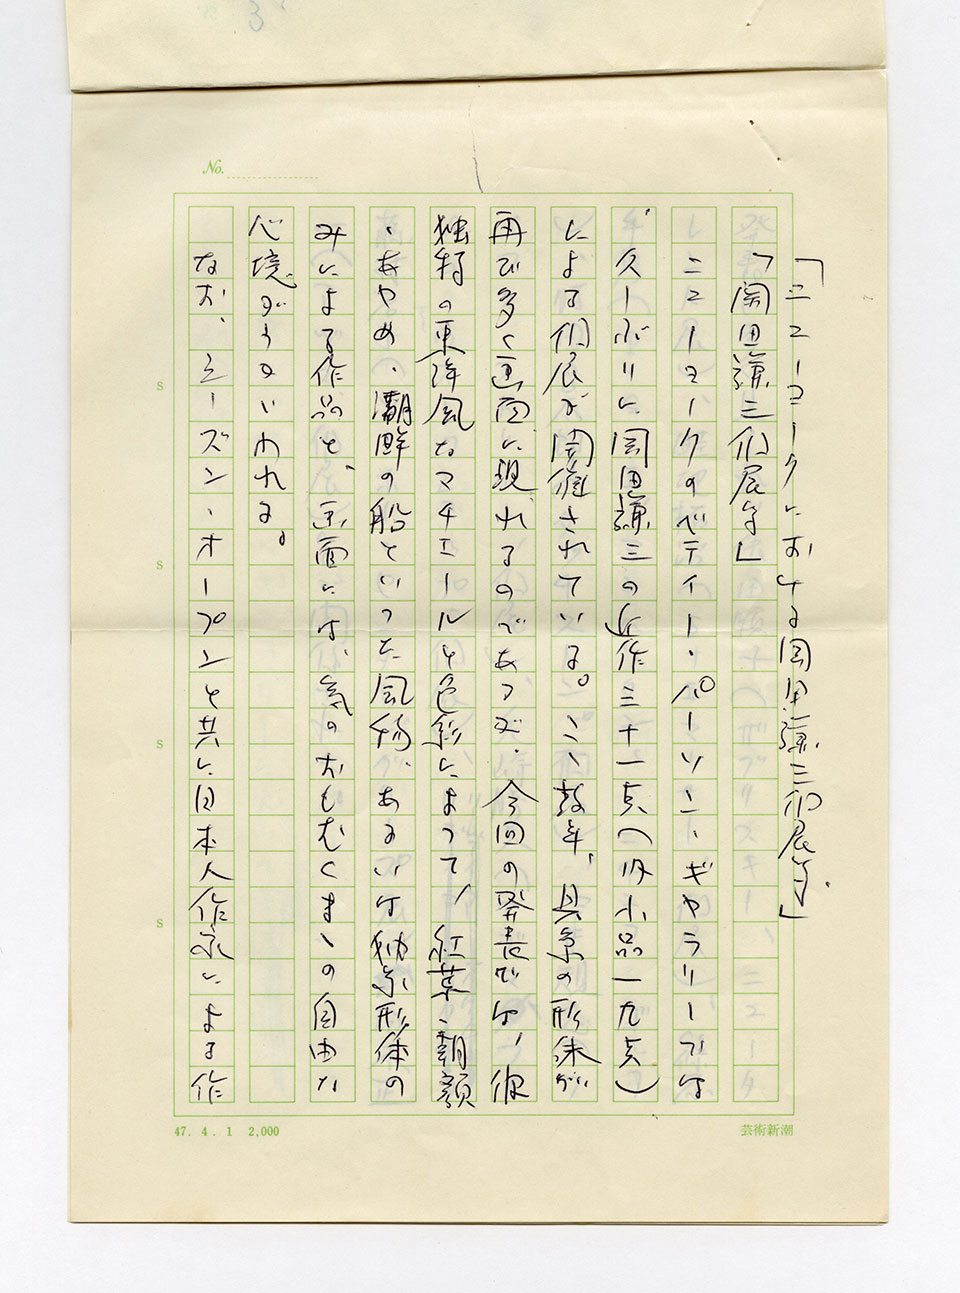 No.
「ニューヨークにおける岡田謙三個展等」
「岡田謙三個展等」
ニューヨークのベティー・パーソンズ・ギャラリーでは
、久しぶりに岡田謙三の近作三十一点(内小品一九点)
による個展が開催されている。ここ数年、具象の形体が
再び多く画面に現れるのであるが、今回の発表では、彼
独特の東洋風なマチエールと色彩によって、紅葉、朝顔
、あやめ、朝鮮の船といった風物、あるいは抽象形体の
みによる作品と、画面には、気のおもむくままの自由な
心境がうかがわれる。
なお、シーズン・オープンと共に日本人作家による作
S
S
S
S
47. 4. 1 2,000
芸術新潮